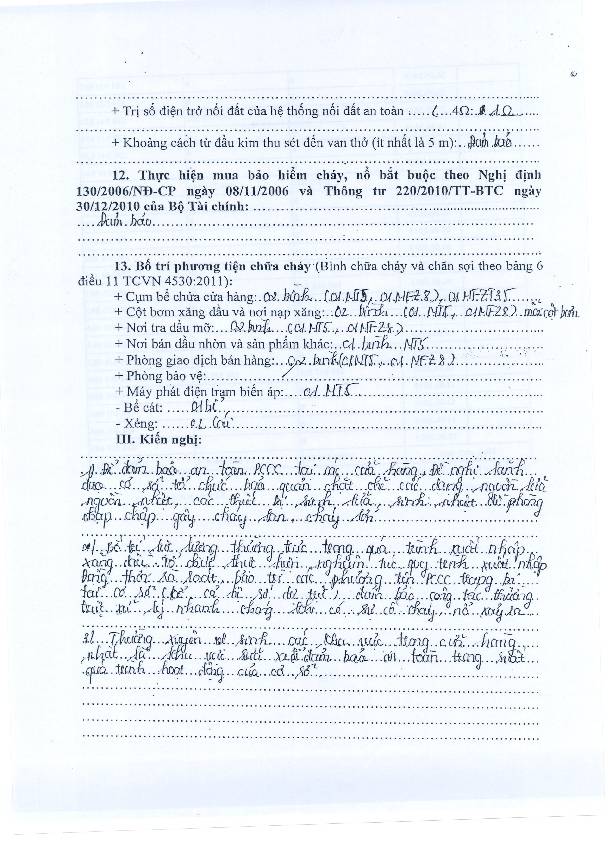 + Trị số điện trở nối đất của hệ thống nối đất an toàn ...... 4Ω: 1Ω ......
+ Khoảng cách từ đầu kim thu sét đến van thở (ít nhất là 5 m): Đảm bảo ......
12. Thực hiện mua bảo hiểm cháy, nổ bắt buộc theo Nghị định
130/2006/NĐ-CP ngày 08/11/2006 và Thông tư 220/2010/TT-BTC ngày
30/12/2010 của Bộ Tài chính: ......
Đảm bảo
13. Bố trí phương tiện chữa cháy (Bình chữa cháy và chăn sợi theo bảng 6
điều 11 TCVN 4530:2011):
+ Cụm bể chứa cửa hàng: 02 bình (01 MT5, 01 MFZ8), 01 MFZT35
+ Cột bơm xăng dầu và nơi nạp xăng: 02 bình (01 MT5, 01 MFZ8) mỗi cột bơm
+ Nơi tra dầu mỡ: 02 bình (01 MT5, 01 MFZ8)
+ Nơi bán dầu nhờn và sản phẩm khác: 01 bình MT5
+ Phòng giao dịch bán hàng: 02 bình (01 MT5, 01 MFZ8)
+ Phòng bảo vệ: ......
+ Máy phát điện trạm biến áp: 01 MT5
- Bể cát: 01 bể
- Xẻng: 02 cái
III. Kiến nghị:
1/ Để đảm bảo an toàn PCCC tại cửa hàng, đề nghị lãnh
đạo cơ sở tổ chức quản chặt chẽ việc dụng nguồn lửa
nguồn nhiệt, các thiết bị sinh lửa, sinh nhiệt đề phòng
chập gây cháy lan cháy lớn
2/ Bố trí lực lượng thường trực trong quá trình xuất nhập
xăng dầu. Tổ chức thực hiện nghiêm túc quy trình xuất nhập
hàng, rà soát, bảo trì các phương tiện PCCC trang bị
tại cơ sở đảm bảo công tác thường
trực xử lý nhanh chóng khi có sự cố cháy, nổ xảy ra
3/ Thường xuyên vệ sinh các khu vực trong cửa hàng
nhất là khu vực đảm bảo an toàn trong suốt
quá trình hoạt động của cơ sở